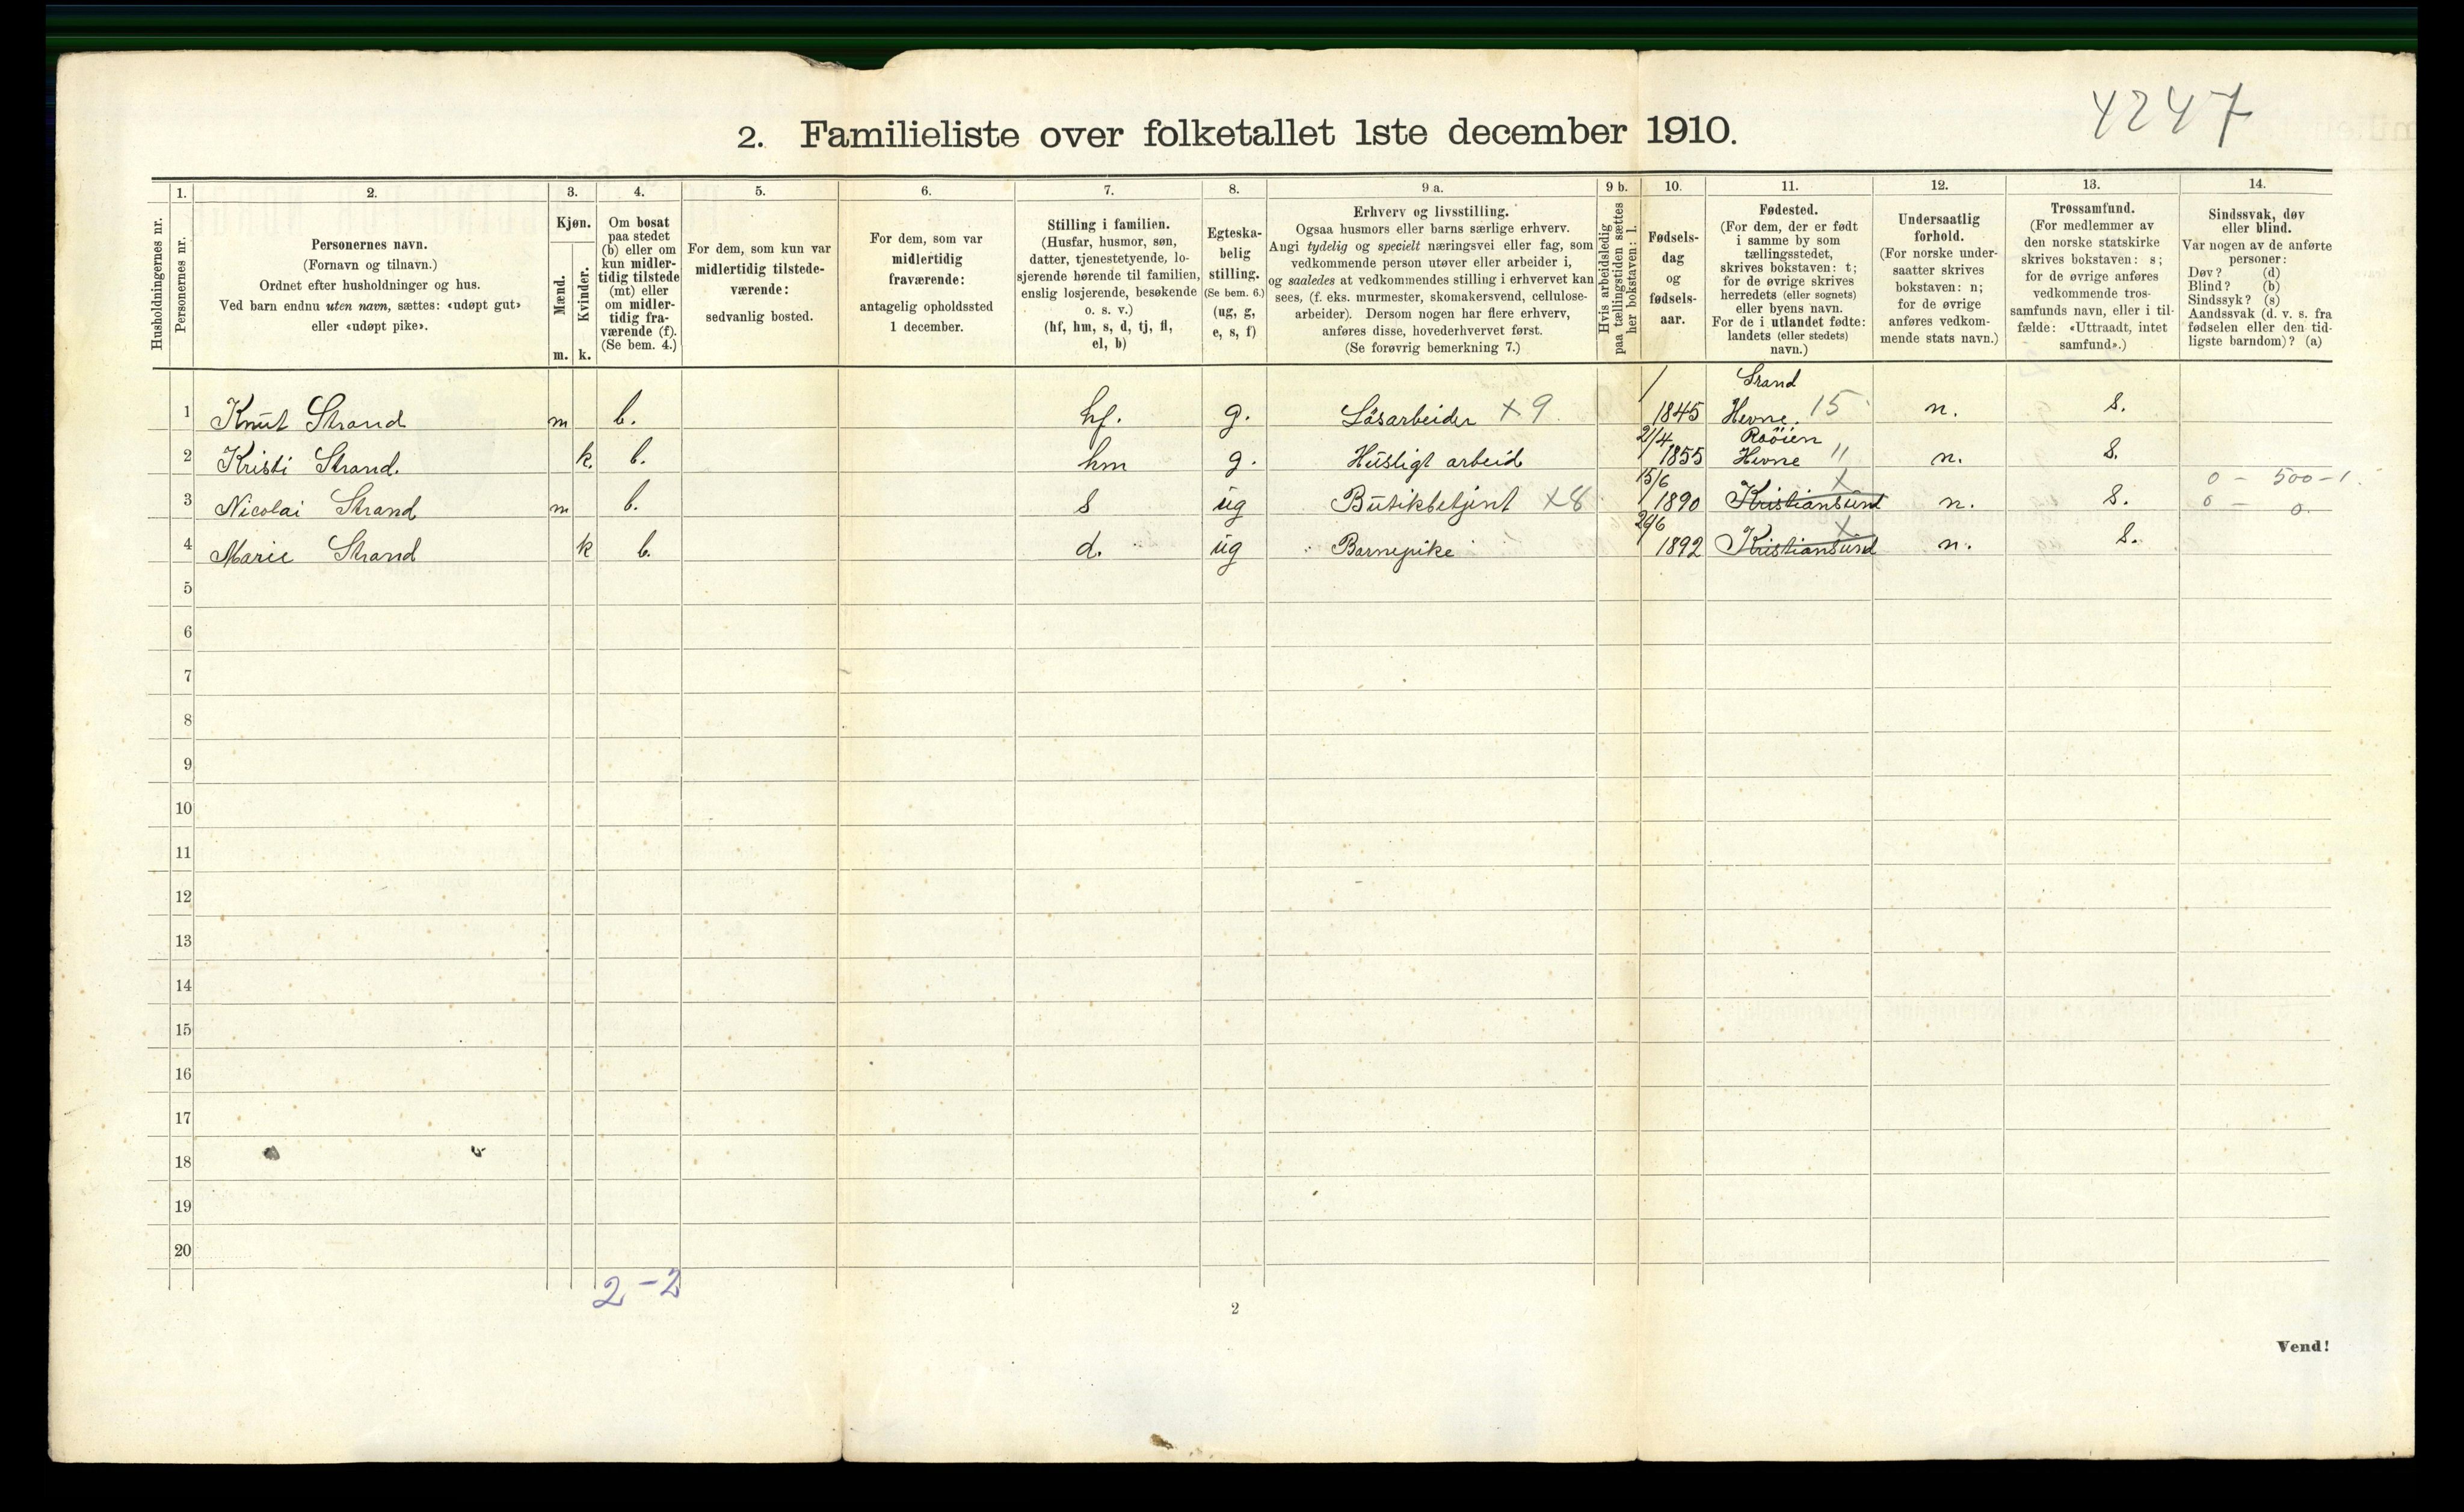 4247
2. Familieliste over folketallet 1ste december 1910.
Husholdningernes nr.
1.
Personernes nr.
2.
Personernes navn.
(Fornavn og tilnavn.)
Ordnet efter husholdninger og hus.
Ved barn endnu uten navn, sættes: «udøpt gut»
eller «udøpt pike».
3.
Kjøn.
Mænd.
Kvinder.
m. k.
4.
Om bosat
paa stedet
(b) eller om
kun midler-
tidig tilstede
(mt) eller
om midler-
tidig fra-
værende (f).
(Se bem. 4.)
5.
For dem, som kun var
midlertidig tilstede-
værende:
sedvanlig bosted.
6.
For dem, som var
midlertidig
fraværende:
antagelig opholdssted
1 december.
7.
Stilling i familien.
(Husfar, husmor, søn,
datter, tjenestetyende, lo-
sjerende hørende til familien,
enslig losjerende, besøkende
o. s. v.)
(hf, hm, s, d, tj, fl,
el, b)
8.
Egteska-
belig
stilling.
(Se bem. 6.)
(ug, g,
e, s, f)
9 a.
Erhverv og livsstilling.
Ogsaa husmors eller barns særlige erhverv.
Angi tydelig og specielt næringsvei eller fag, som
vedkommende person utøver eller arbeider i,
og saaledes at vedkommendes stilling i erhvervet kan
sees, (f. eks. murmester, skomakersvend, cellulose-
arbeider). Dersom nogen har flere erhverv,
anføres disse, hovederhvervet først.
(Se forøvrig bemerkning 7.)
9 b.
Hvis arbeidsledig
paa tællingstiden sættes
her bokstaven: l.
10.
Fødsels-
dag
og
fødsels-
aar.
11.
Fødested.
(For dem, der er født
i samme by som
tællingsstedet,
skrives bokstaven: t;
for de øvrige skrives
herredets (eller sognets)
eller byens navn.
For de i utlandet fødte:
landets (eller stedets)
navn.)
12.
Undersaatlig
forhold.
(For norske under-
saatter skrives
bokstaven: n;
for de øvrige
anføres vedkom-
mende stats navn.)
13.
Trossamfund.
(For medlemmer av
den norske statskirke
skrives bokstaven: s;
for de øvrige anføres
vedkommende tros-
samfunds navn, eller i til-
fælde: «Uttraadt, intet
samfund».)
14.
Sindssvak, døv
eller blind.
Var nogen av de anførte
personer:
Døv? (d)
Blind? (b)
Sindssyk? (s)
Aandssvak (d. v. s. fra
fødselen eller den tid-
ligste barndom)? (a)
1 Knut Strand m b. hf. g. Løsarbeider X 9 / 1845 Strand Hevne. 15 n. s.
2 Kristi Strand. k. b. hm g. Husligt arbeid 21/4 1855 Hevne " n. s.
0 - 500-1.
3 Nicolai Strand m b. s ug Butikbetjent X8 15/6 1890 Kristiansund X n. s. 0 - 0.
4 Marie Strand k b. d. ug Barnepike 29/6 1892 Kristiansund X n. s.
5
6
7
8
9
10
11
12
13
14
15
16
17
18
19
20
2-2
2
Vend!